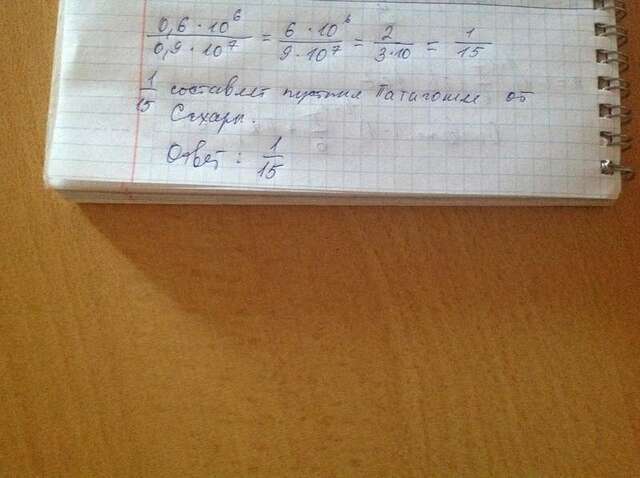 0,6 · 10⁶ / 0,9 · 10⁷ = 6 · 10⁶ / 9 · 10⁷ = 2 / 3 · 10 = 1 / 15
1/15 составляет пустыня Патагония от
Сахары.
Ответ : 1/15